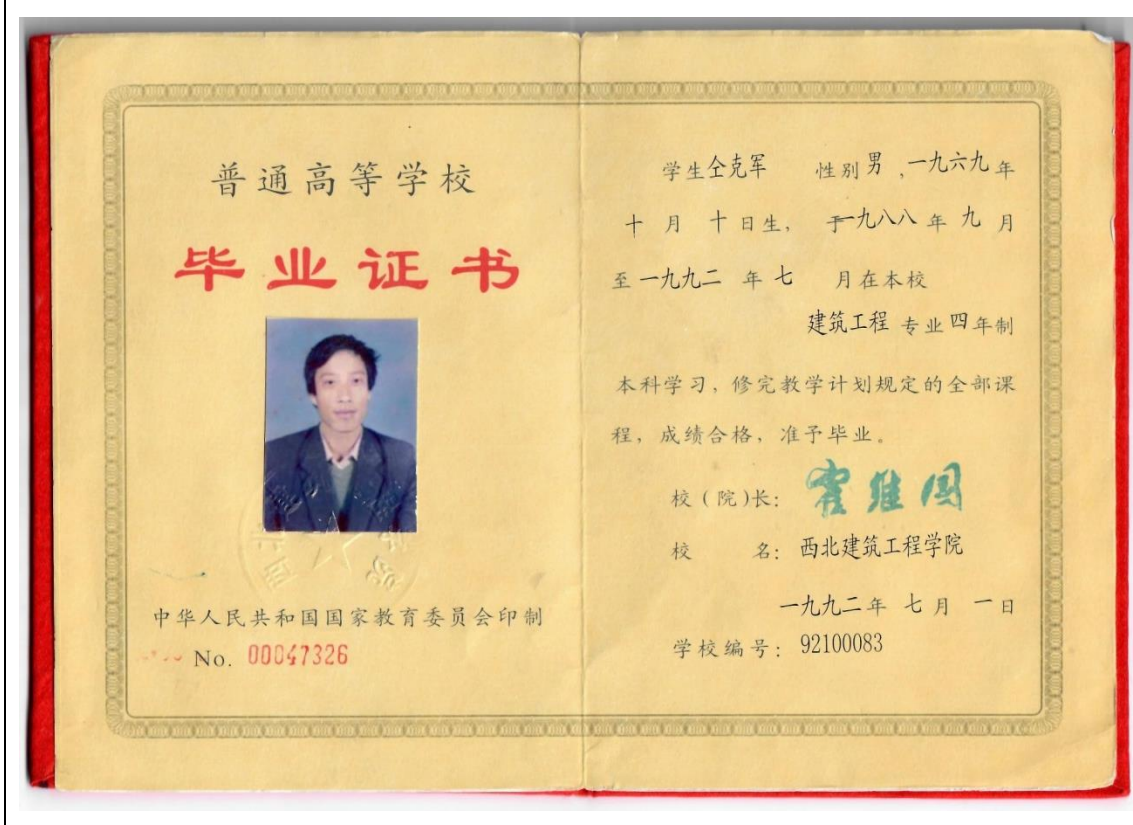 普通高等学校
毕业证书
中华人民共和国国家教育委员会印制
No. 00047326
学生仝克军 性别男,一九六九年
十月十日生, 于一九八八年九月
至一九九二年七月在本校
建筑工程专业四年制
本科学习, 修完教学计划规定的全部课
程, 成绩合格, 准予毕业。
校(院)长: 霍维国
校 名: 西北建筑工程学院
一九九二年七月一日
学校编号: 92100083